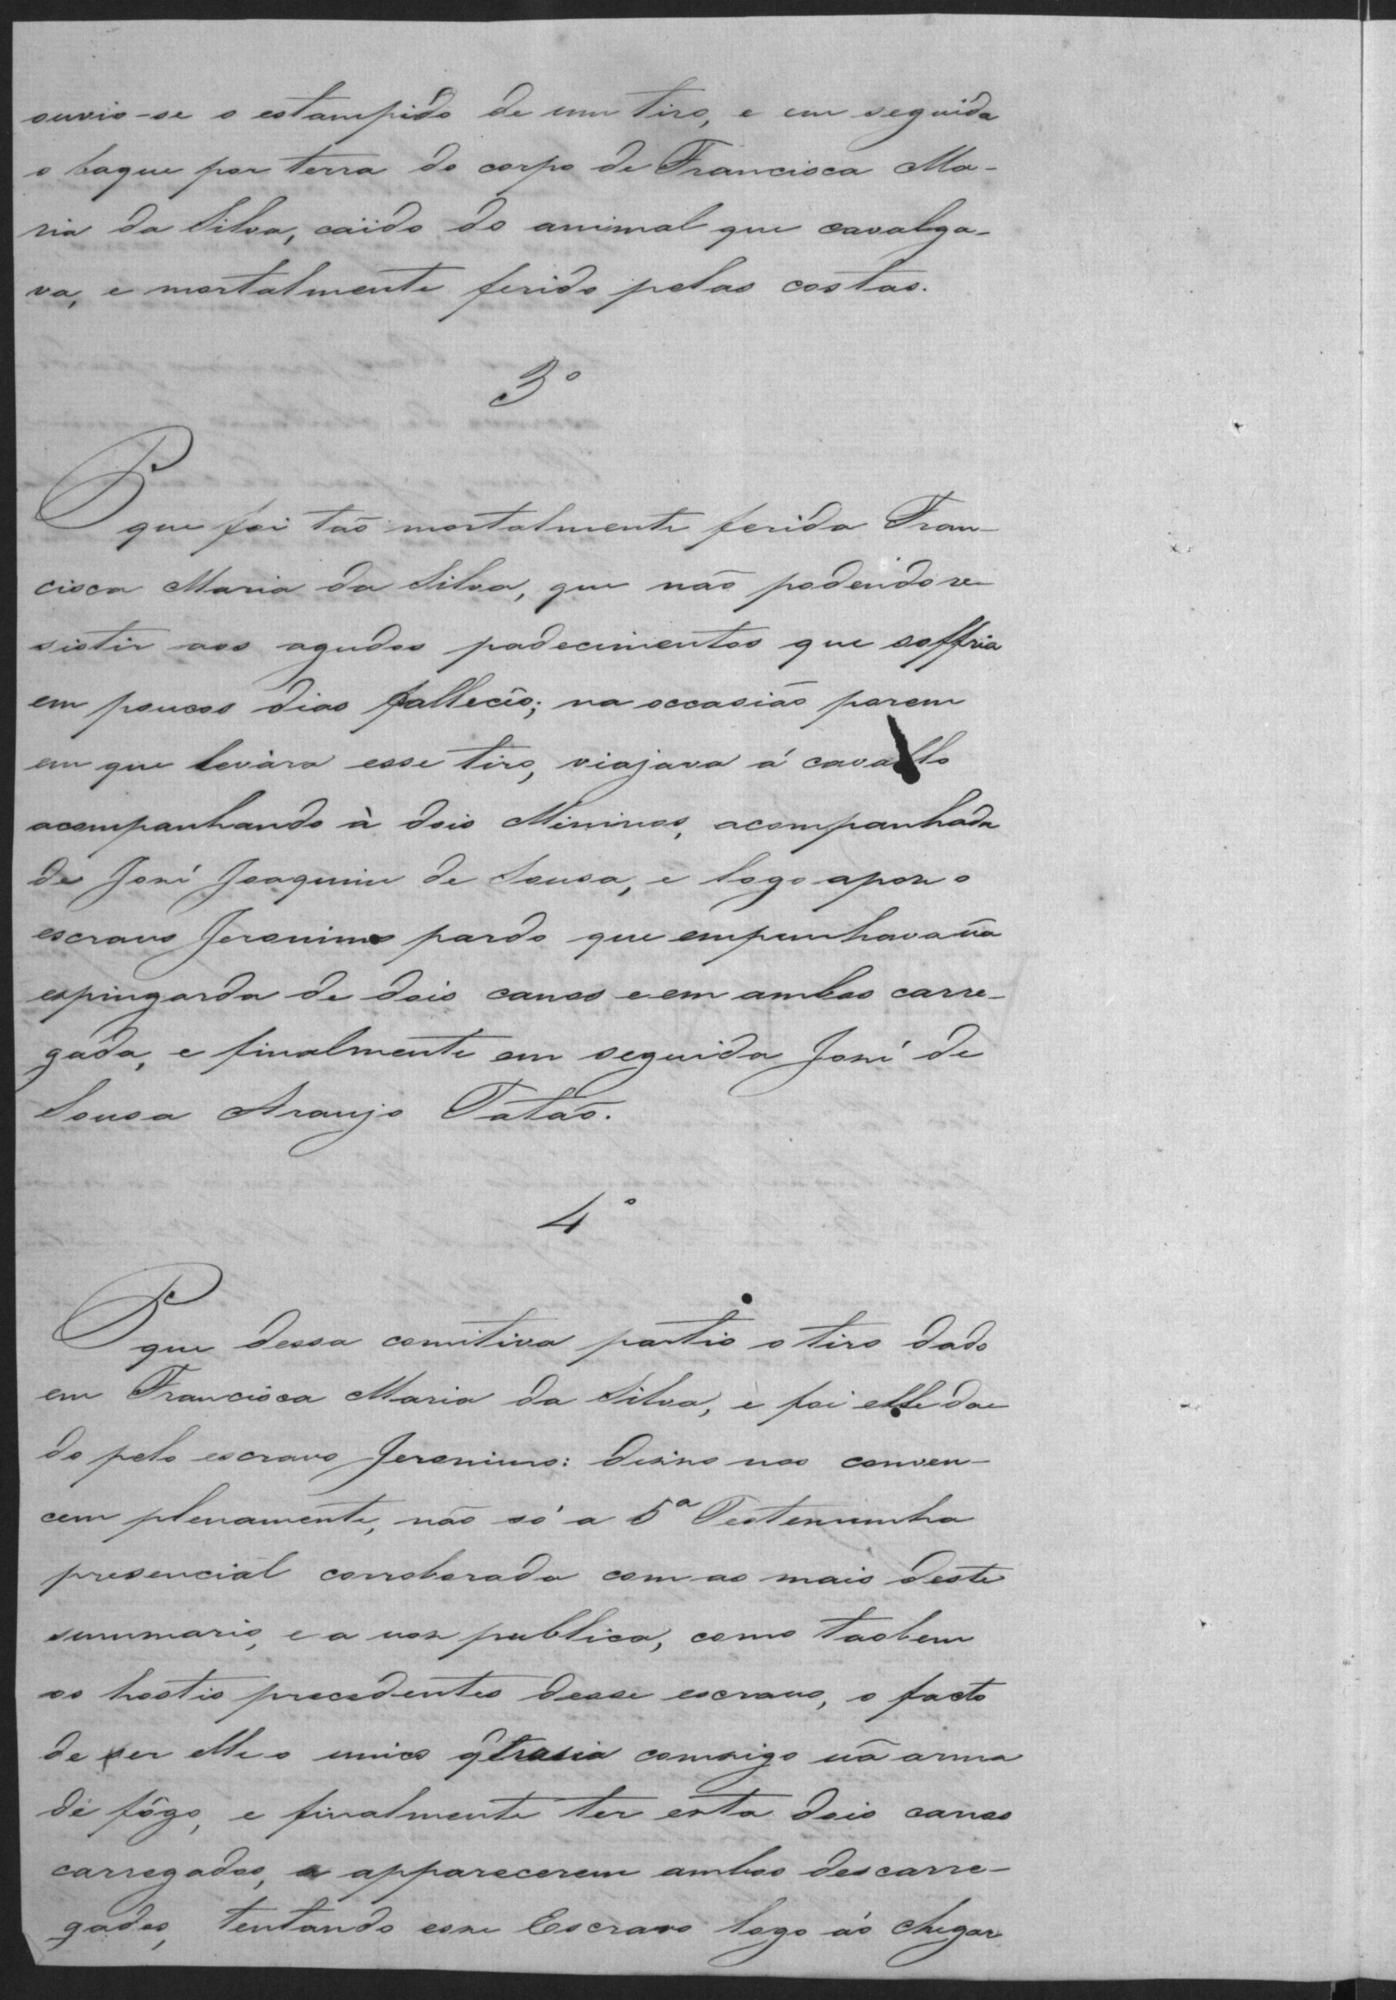 ouvio-se o estampido de um tiro, e em seguida
o baque por terra do corpo de Francisca Ma-
ria da Silva, caïdo do animal que cavalga-
va, e mortalmente ferido pelas costas.
3º
P que foi tão mortalmente ferida Fran-
cisca Maria da Silva, que não podendo re
sistir aos agudos padecimentos que soffria
em poucos dias falleceo; na occasião porem
em que levàra esse tiro, viajava á cavallo
acompanhando à dois Mininos, acompanhada
de José Joaquim de Sousa, e logo apoz o
escravo Jeronimo pardo que empunhava ũa
espingarda de dois canos e em ambos carre-
gada, e finalmente em seguida José de
Sousa Araujo Tatão.
4º
P que dessa comitiva partio o tiro dado
em Francisca Maria da Silva, e foi elle da
do pelo escravo Jeronimo: disso nos conven-
cem plenamente, não só a 5ª Testemunha
presencial corroborada com as mais deste
summario, e a voz publica, como taobem
os hostis precedentes desse escravo, o facto
de ser elle o unico q̃ trasia comsigo ũa arma
de fôgo, e finalmente ter esta dois canos
carregados, e apparecerem ambos descarre-
gados, tentando esse Escravo logo áo chegar